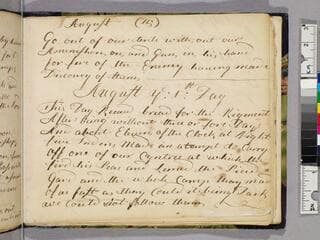 August (15)
Go out of our tents without our
Ammunition on, and Gun, in his hand
for fear of the Enemy having made
Discovery of them,
August ye 1st Day
This Day Bread Served for the Regiment
After being without three or four Days
And about Eleven of the Clock, at Night
five Indians Made an attempt to Carry
off one of our Centre at which he
fired his Peace and the
Gave and the whole Camp they ran
of as fast as they Could it being Dark
we Could Not follow them.